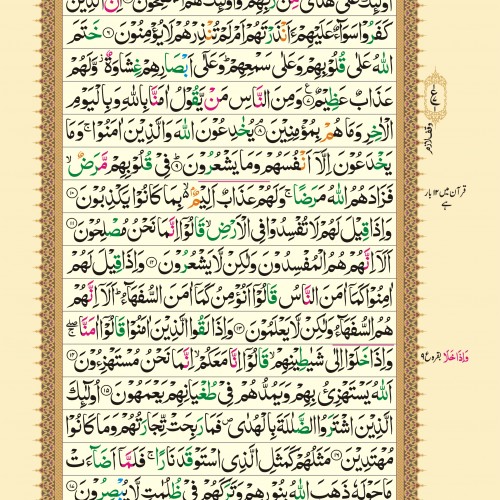 اُولٰٓئِكَ عَلٰى هُدًى مِّنْ رَّبِّهِمْ وَاُولٰٓئِكَ هُمُ الْمُفْلِحُوْنَ ۝ اِنَّ الَّذِيْنَ
كَفَرُوْا سَوَآءٌ عَلَيْهِمْ ءَاَنْذَرْتَهُمْ اَمْ لَمْ تُنْذِرْهُمْ لَا يُؤْمِنُوْنَ ۝۶ خَتَمَ
اللّٰهُ عَلٰى قُلُوْبِهِمْ وَعَلٰى سَمْعِهِمْ ؕ وَعَلٰٓى اَبْصَارِهِمْ غِشَاوَةٌ ؗ وَّلَهُمْ
عَذَابٌ عَظِيْمٌ ۝۷ وَمِنَ النَّاسِ مَنْ يَّقُوْلُ اٰمَنَّا بِاللّٰهِ وَبِالْيَوْمِ
الْاٰخِرِ وَمَا هُمْ بِمُؤْمِنِيْنَ ۝۸ يُخٰدِعُوْنَ اللّٰهَ وَالَّذِيْنَ اٰمَنُوْا ۚ وَمَا
يَخْدَعُوْنَ اِلَّاۤ اَنْفُسَهُمْ وَمَا يَشْعُرُوْنَ ۝۹ فِيْ قُلُوْبِهِمْ مَّرَضٌ ۙ
فَزَادَهُمُ اللّٰهُ مَرَضًا ۚ وَلَهُمْ عَذَابٌ اَلِيْمٌۢ ۙ بِمَا كَانُوْا يَكْذِبُوْنَ ۝۱۰
وَاِذَا قِيْلَ لَهُمْ لَا تُفْسِدُوْا فِي الْاَرْضِ ۙ قَالُوْۤا اِنَّمَا نَحْنُ مُصْلِحُوْنَ ۝۱۱
اَلَاۤ اِنَّهُمْ هُمُ الْمُفْسِدُوْنَ وَلٰكِنْ لَّا يَشْعُرُوْنَ ۝۱۲ وَاِذَا قِيْلَ لَهُمْ
اٰمِنُوْا كَمَاۤ اٰمَنَ النَّاسُ قَالُوْۤا اَنُؤْمِنُ كَمَاۤ اٰمَنَ السُّفَهَآءُ ؕ اَلَاۤ اِنَّهُمْ
هُمُ السُّفَهَآءُ وَلٰكِنْ لَّا يَعْلَمُوْنَ ۝۱۳ وَاِذَا لَقُوا الَّذِيْنَ اٰمَنُوْا قَالُوْۤا اٰمَنَّا ۚۖ
وَاِذَا خَلَوْا اِلٰى شَيٰطِيْنِهِمْ ۙ قَالُوْۤا اِنَّا مَعَكُمْ ۙ اِنَّمَا نَحْنُ مُسْتَهْزِءُوْنَ ۝۱۴
اَللّٰهُ يَسْتَهْزِئُ بِهِمْ وَيَمُدُّهُمْ فِيْ طُغْيَانِهِمْ يَعْمَهُوْنَ ۝۱۵ اُولٰٓئِكَ
الَّذِيْنَ اشْتَرَوُا الضَّلٰلَةَ بِالْهُدٰى ۪ فَمَا رَبِحَتْ تِّجَارَتُهُمْ وَمَا كَانُوْا
مُهْتَدِيْنَ ۝۱۶ مَثَلُهُمْ كَمَثَلِ الَّذِي اسْتَوْقَدَ نَارًا ۚ فَلَمَّاۤ اَضَآءَتْ
مَا حَوْلَهٗ ذَهَبَ اللّٰهُ بِنُوْرِهِمْ وَتَرَكَهُمْ فِيْ ظُلُمٰتٍ لَّا يُبْصِرُوْنَ ۝۱۷
وقف لازم
قرآن میں ۱۴ بار
ہے
وَاِذَا خَلَا بقرہ ع ۹